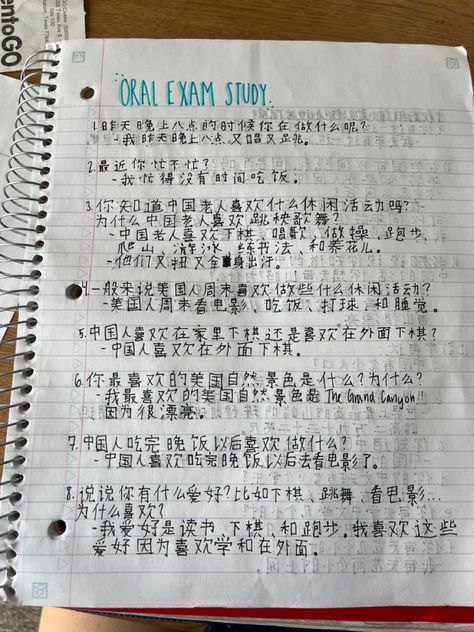 ORAL EXAM STUDY
1. 昨天晚上八点的时候你在做什么呢?
- 我昨天晚上八点又唱又跳。
2. 最近你忙不忙?
- 我忙得没有时间吃饭。
3. 你知道中国老人喜欢什么休闲活动吗?
为什么中国老人喜欢跳秧歌舞?
- 中国老人喜欢下棋、唱歌、做操、跑步、
爬山、游泳、练书法、和养花儿。
- 他们又扭又全身出汗。
4. 一般来说美国人周末喜欢做些什么休闲活动?
- 美国人周末看电影、吃饭、打球、和睡觉。
5. 中国人喜欢在家里下棋还是喜欢在外面下棋?
- 中国人喜欢在外面下棋。
6. 你最喜欢的美国自然景色是什么?为什么?
- 我最喜欢的美国自然景色是 The Grand Canyon
因为很漂亮。
7. 中国人吃完晚饭以后喜欢做什么?
- 中国人喜欢吃完晚饭以后去看电影了。
8. 说说你有什么爱好?比如下棋、跳舞、看电影...
为什么喜欢?
- 我爱好是读书、下棋、和跑步。我喜欢这些
爱好因为喜欢学和在外面。